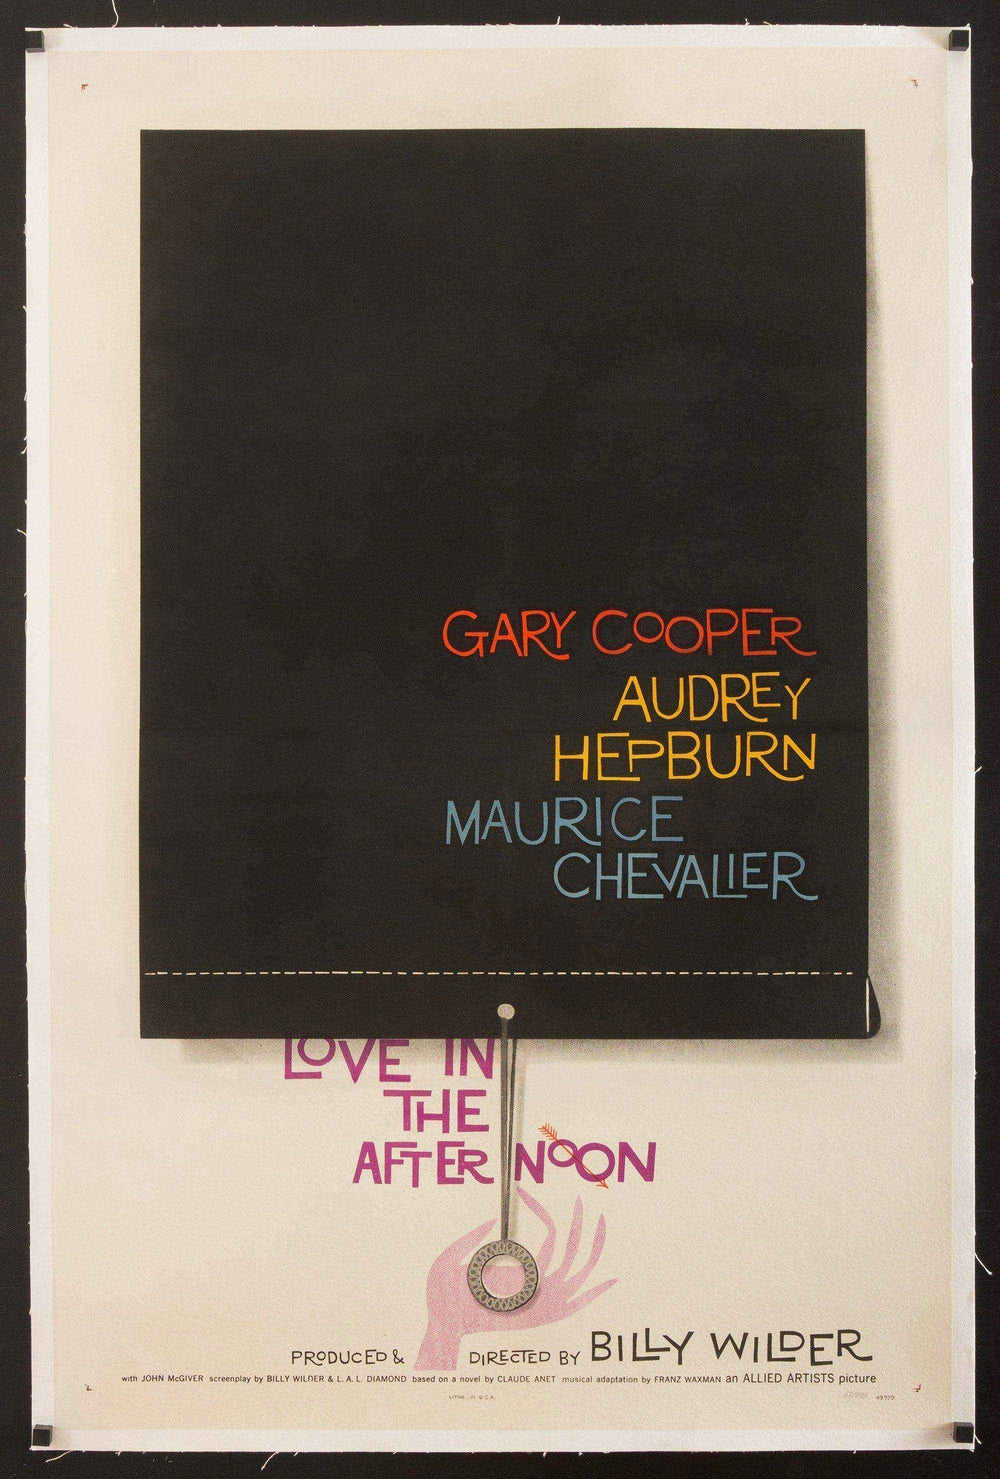 GARY COOPER
AUDREY
HEPBURN
MAURICE
CHEVALIER
LOVE IN
THE
AFTERNOON
PRODUCED & DIRECTED BY BILLY WILDER
with JOHN McGIVER screenplay by BILLY WILDER & I. A. L. DIAMOND based on a novel by CLAUDE ANET musical adaptation by FRANZ WAXMAN an ALLIED ARTISTS picture
LITHO. IN U.S.A.